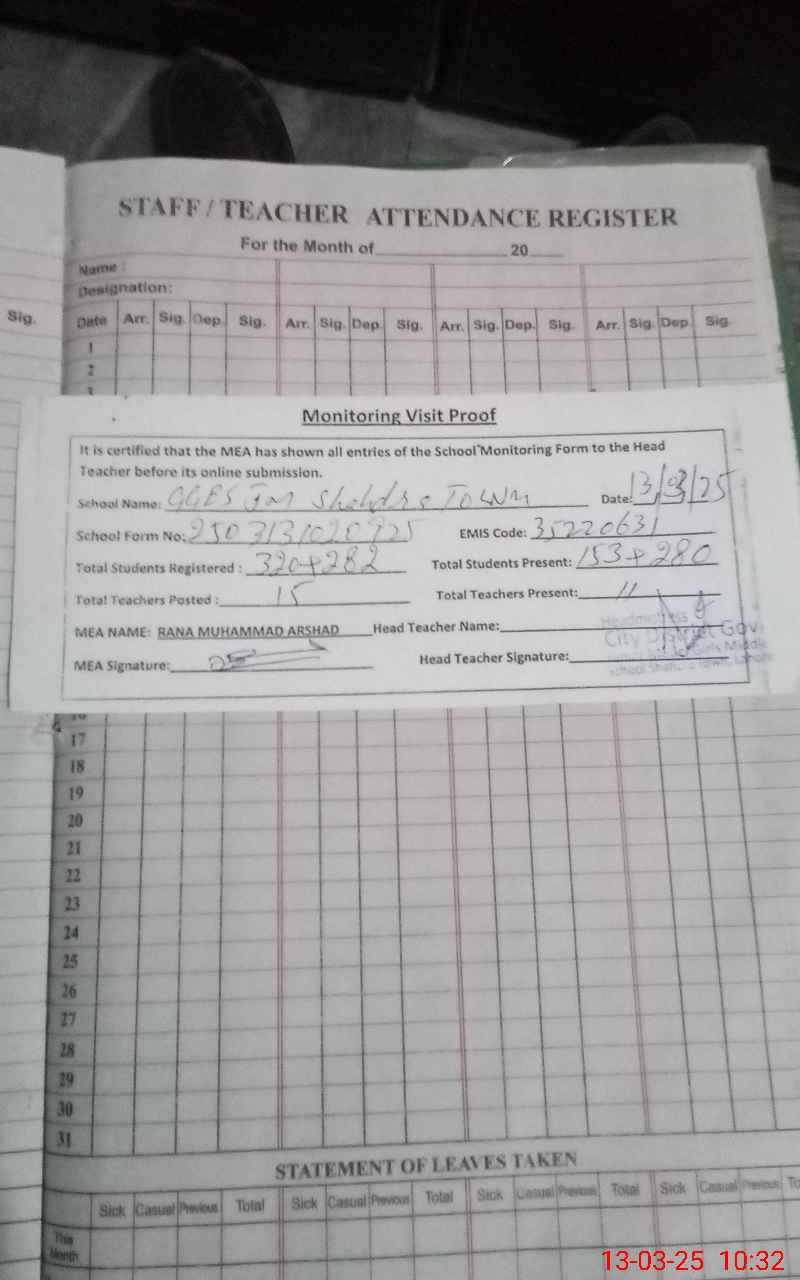 STAFF / TEACHER ATTENDANCE REGISTER
For the Month of 20
Name :
Designation:
Sig.
Date Arr. Sig. Dep. Sig. Arr. Sig. Dep. Sig. Arr. Sig. Dep. Sig. Arr. Sig. Dep. Sig.
1
2
3
Monitoring Visit Proof
It is certified that the MEA has shown all entries of the School Monitoring Form to the Head
Teacher before its online submission.
School Name: Town Date: 13/03/25
School Form No: EMIS Code: 35220631
Total Students Registered : 320+282 Total Students Present: 153+280
Total Teachers Posted : 15 Total Teachers Present: 11
MEA NAME: RANA MUHAMMAD ARSHAD Head Teacher Name:
Headmistress
City District Gov
Girls Middle
MEA Signature: Head Teacher Signature:
School Town, Lahore
16
17
18
19
20
21
22
23
24
25
26
27
28
29
30
31
STATEMENT OF LEAVES TAKEN
Sick Casual Previous Total Sick Casual Previous Total Sick Casual Previous Total Sick Casual Previous To
This
Month
13-03-25 10:32